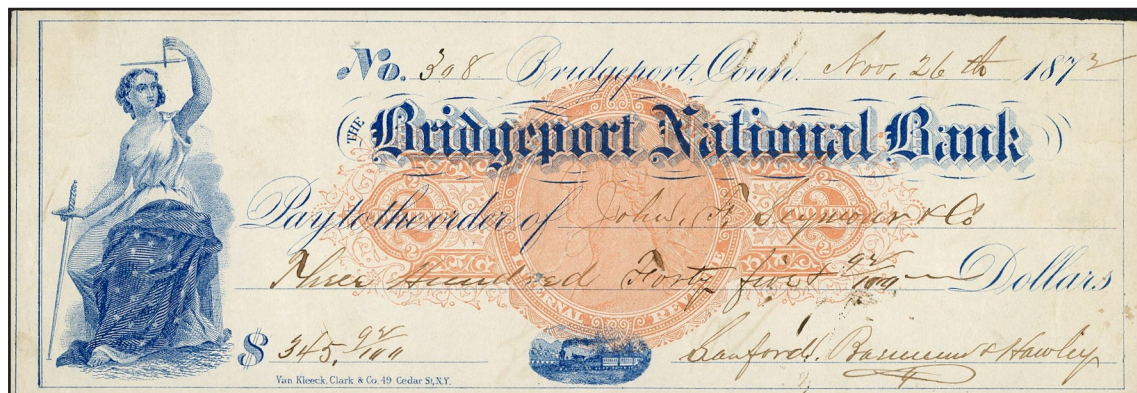 No. 398 Bridgeport, Conn. Nov, 26th 1872
THE Bridgeport National Bank
Pay to the order of John. F. Seymour & Co
Three Hundred Forty five & 92/100 Dollars
$ 345, 92/100
Sanford. Barnum & Hawley
Van Kleeck, Clark & Co. 49 Cedar St, N.Y.
2 2
INTERNAL REVENUE